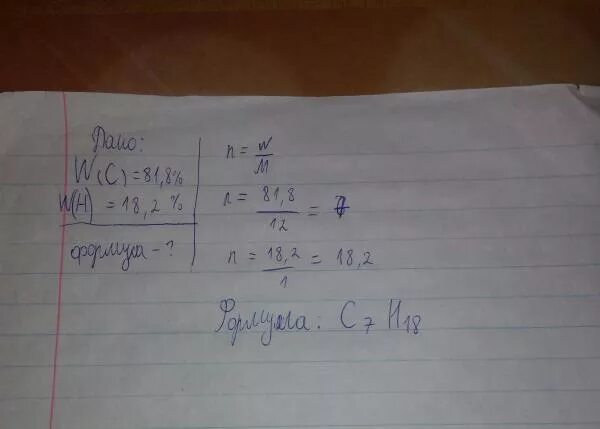 Дано:
W(C) = 81,8%
W(H) = 18,2 %
формула - ?
n = w/M
n = 81,8/12 = 7
n = 18,2/1 = 18,2
Формула: C7H18